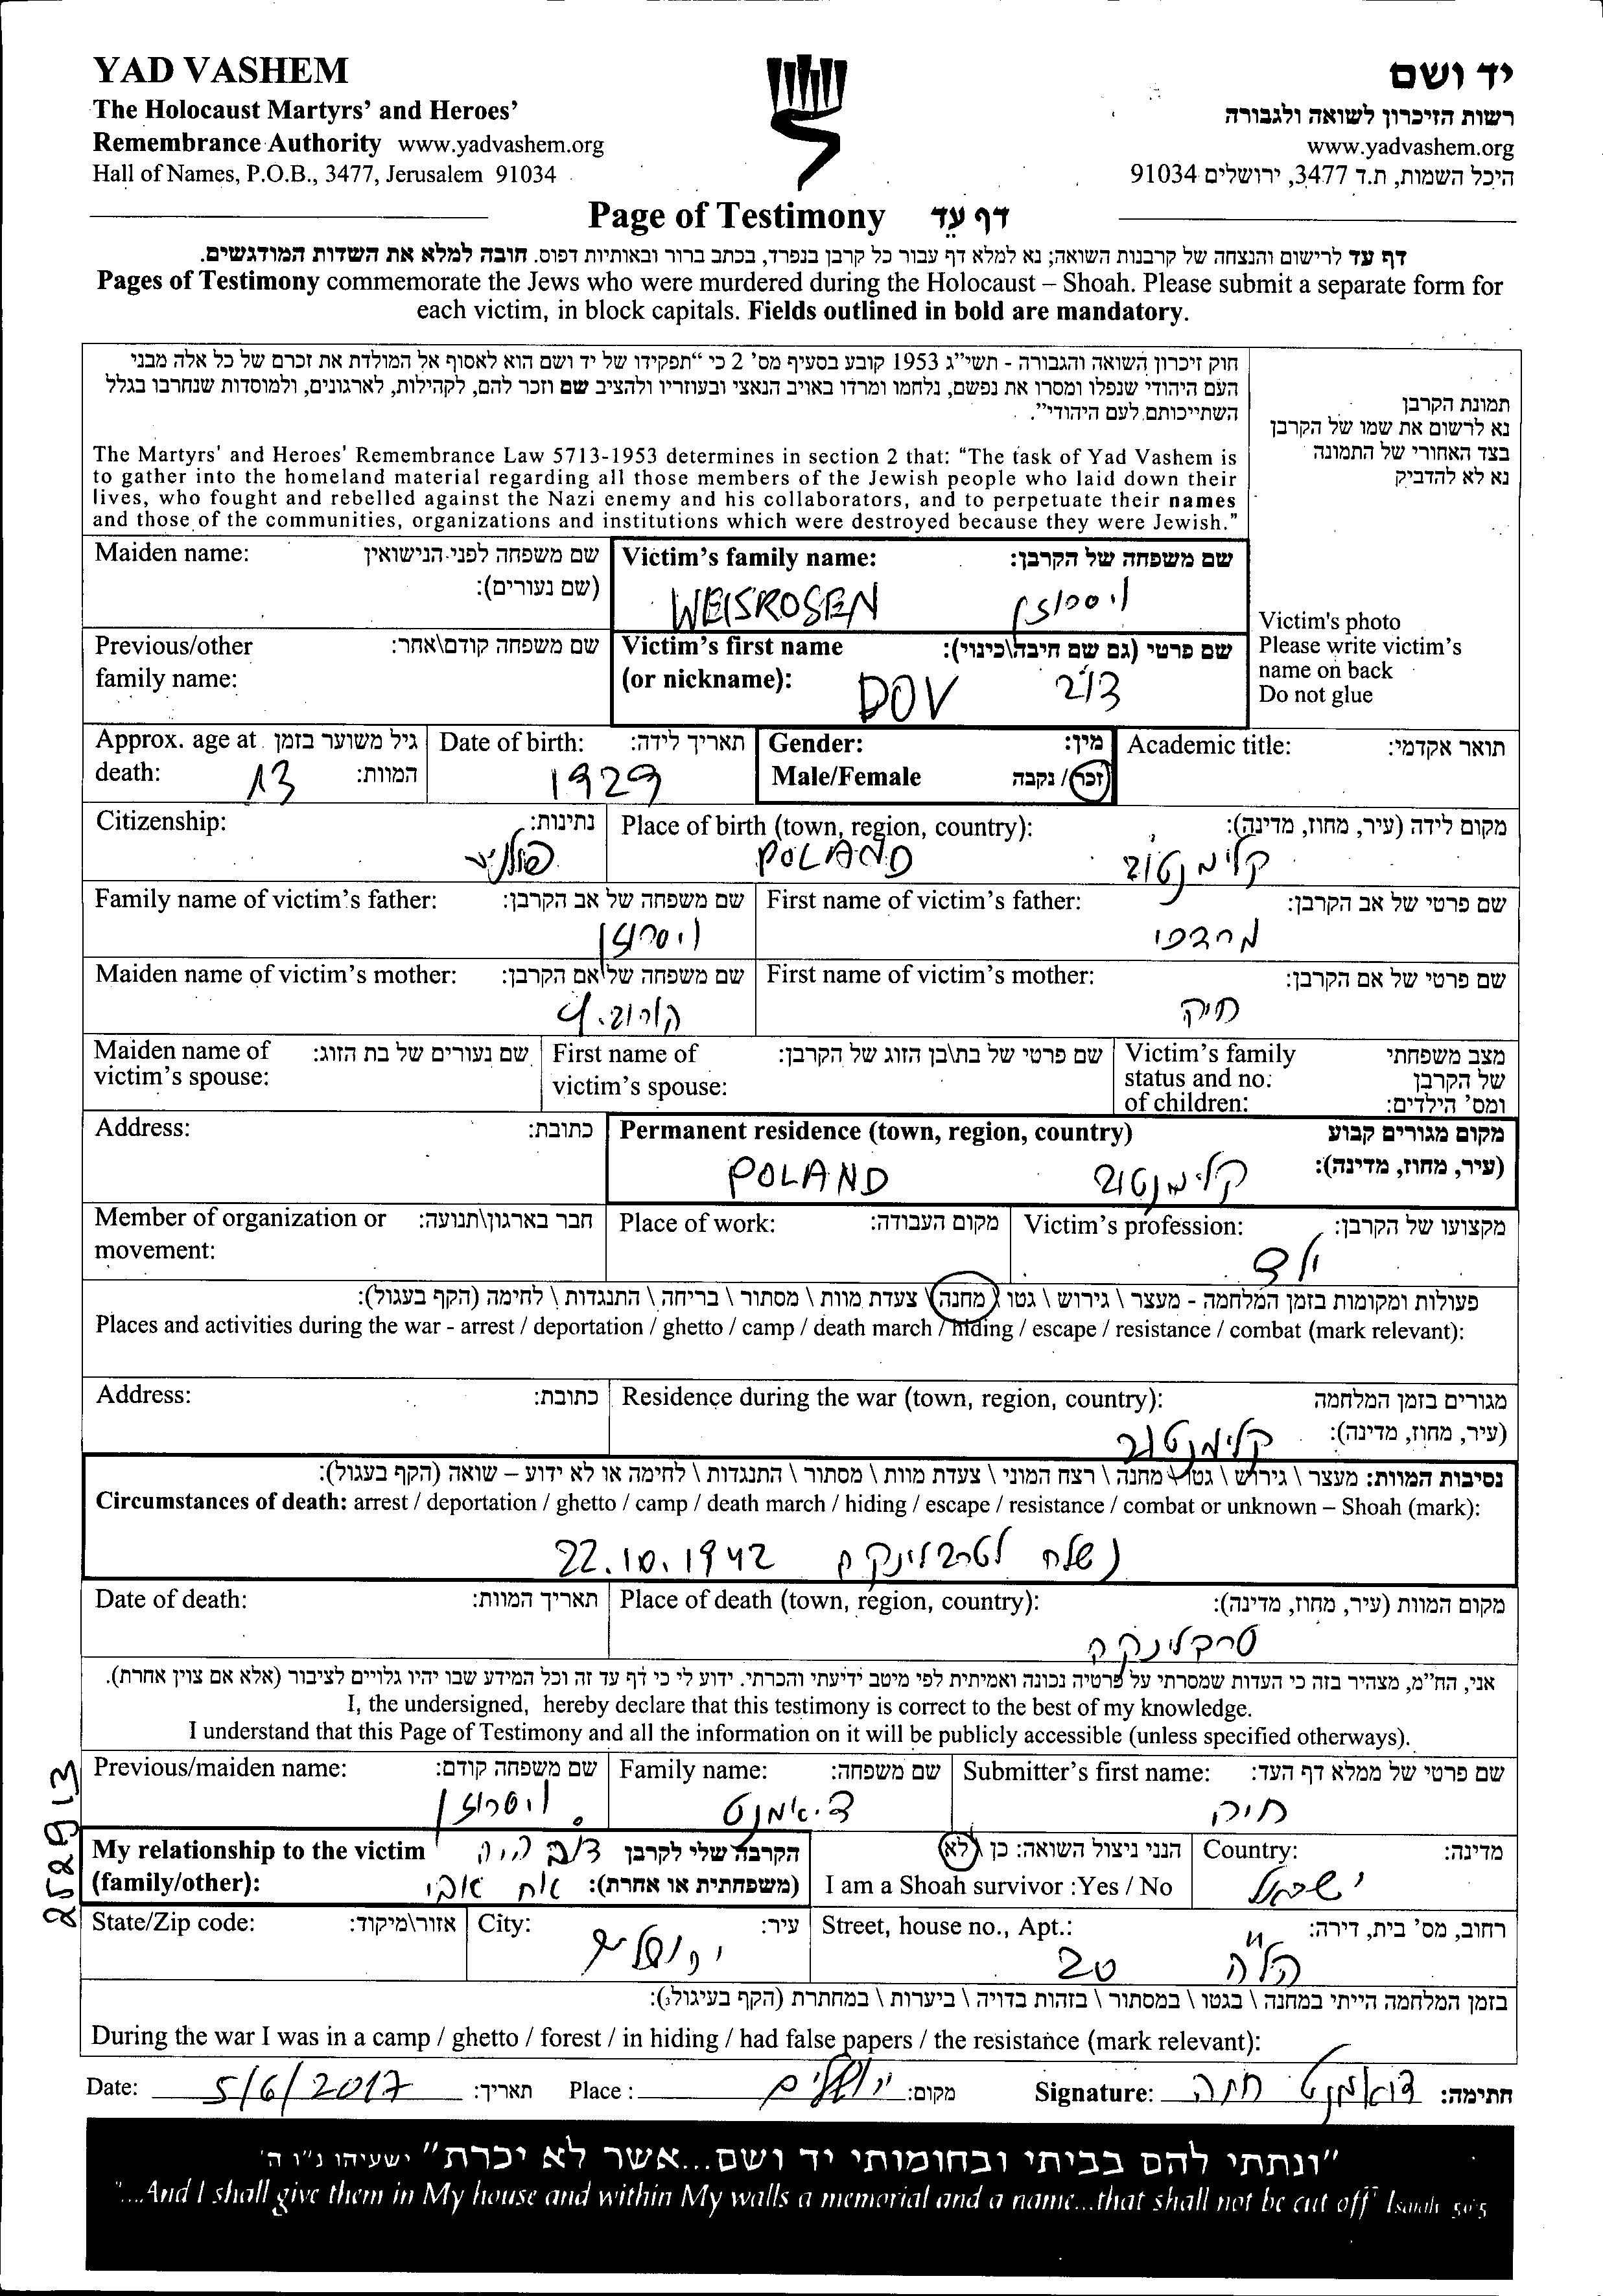 YAD VASHEM
יד ושם
The Holocaust Martyrs' and Heroes'
רשות הזיכרון לשואה ולגבורה
Remembrance Authority www.yadvashem.org
www.yadvashem.org
Hall of Names, P.O.B., 3477, Jerusalem 91034
היכל השמות, ת.ד 3477, ירושלים 91034
Page of Testimony דף עֵד
דף עד לרישום והנצחה של קרבנות השואה; נא למלא דף עבור כל קרבן בנפרד, בכתב ברור ובאותיות דפוס. חובה למלא את השדות המודגשים.
Pages of Testimony commemorate the Jews who were murdered during the Holocaust – Shoah. Please submit a separate form for
each victim, in block capitals. Fields outlined in bold are mandatory.
חוק זיכרון השואה והגבורה - תשי"ג 1953 קובע בסעיף מס' 2 כי "תפקידו של יד ושם הוא לאסוף אל המולדת את זכרם של כל אלה מבני
העם היהודי שנפלו ומסרו את נפשם, נלחמו ומרדו באויב הנאצי ובעוזריו ולהציב שם וזכר להם, לקהילות, לארגונים, ולמוסדות שנחרבו בגלל
השתייכותם לעם היהודי".
תמונת הקרבן
נא לרשום את שמו של הקרבן
בצד האחורי של התמונה
נא לא להדביק
The Martyrs' and Heroes' Remembrance Law 5713-1953 determines in section 2 that: "The task of Yad Vashem is
to gather into the homeland material regarding all those members of the Jewish people who laid down their
lives, who fought and rebelled against the Nazi enemy and his collaborators, and to perpetuate their names
and those of the communities, organizations and institutions which were destroyed because they were Jewish."
Victim's photo
Please write victim's
name on back
Do not glue
Maiden name: שם משפחה לפני הנישואין
(שם נעורים):
Victim's family name: שם משפחה של הקרבן:
WEISROSEN ויסרוזן
Previous/other שם משפחה קודם\אחר:
family name:
Victim's first name שם פרטי (גם שם חיבה\כינוי):
(or nickname): DOV דב
Approx. age at גיל משוער בזמן
death: 13 המוות:
Date of birth: תאריך לידה:
1929
Gender: מין:
Male/Female זכר / נקבה
Academic title: תואר אקדמי:
Citizenship: נתינות:
Place of birth (town, region, country): מקום לידה (עיר, מחוז, מדינה):
POLAND קלימנטוב
Family name of victim's father: שם משפחה של אב הקרבן:
ויסרוזן
First name of victim's father: שם פרטי של אב הקרבן:
מרדכי
Maiden name of victim's mother: שם משפחה של אם הקרבן:
First name of victim's mother: שם פרטי של אם הקרבן:
חיה
Maiden name of שם נעורים של בת הזוג:
victim's spouse:
First name of שם פרטי של בת\בן הזוג של הקרבן:
victim's spouse:
Victim's family מצב משפחתי
status and no. של הקרבן
of children: ומס' הילדים:
Address: כתובת:
Permanent residence (town, region, country) מקום מגורים קבוע
(עיר, מחוז, מדינה):
POLAND קלימנטוב
Member of organization or חבר בארגון\תנועה:
movement:
Place of work: מקום העבודה:
Victim's profession: מקצועו של הקרבן:
ילד
פעולות ומקומות בזמן המלחמה - מעצר \ גירוש \ גטו \ מחנה \ צעדת מוות \ מסתור \ בריחה \ התנגדות \ לחימה (הקף בעגול):
Places and activities during the war - arrest / deportation / ghetto / camp / death march / hiding / escape / resistance / combat (mark relevant):
Address: כתובת:
Residence during the war (town, region, country): מגורים בזמן המלחמה
(עיר, מחוז, מדינה):
קלימנטוב
נסיבות המוות: מעצר \ גירוש \ גטו \ מחנה \ רצח המוני \ צעדת מוות \ מסתור \ התנגדות \ לחימה או לא ידוע – שואה (הקף בעגול):
Circumstances of death: arrest / deportation / ghetto / camp / death march / hiding / escape / resistance / combat or unknown – Shoah (mark):
נשלח לטרבלינקה 22.10.1942
Date of death: תאריך המוות:
Place of death (town, region, country): מקום המוות (עיר, מחוז, מדינה):
טרבלינקה
אני, הח"מ, מצהיר בזה כי העדות שמסרתי על פרטיה נכונה ואמיתית לפי מיטב ידיעתי והכרתי. ידוע לי כי דף עד זה וכל המידע שבו יהיו גלויים לציבור (אלא אם צוין אחרת).
I, the undersigned, hereby declare that this testimony is correct to the best of my knowledge.
I understand that this Page of Testimony and all the information on it will be publicly accessible (unless specified otherways).
Previous/maiden name: שם משפחה קודם:
ויסרוזן
Family name: שם משפחה:
דיאמנט
Submitter's first name: שם פרטי של ממלא דף העד:
חיה
My relationship to the victim הקרבה שלי לקרבן
(family/other): (משפחתית או אחרת):
דב היה
אח אבי
I am a Shoah survivor :Yes / No הנני ניצול השואה: כן \ לא
Country: מדינה:
ישראל
State/Zip code: אזור\מיקוד:
City: עיר:
ירושלים
Street, house no., Apt.: רחוב, מס' בית, דירה:
הל"ה 20
בזמן המלחמה הייתי במחנה \ בגטו \ במסתור \ בזהות בדויה \ ביערות \ במחתרת (הקף בעיגול):
During the war I was in a camp / ghetto / forest / in hiding / had false papers / the resistance (mark relevant):
Date: 5/6/2017 תאריך: Place : ירושלים מקום: Signature: דיאמנט חיה חתימה:
252913
"ונתתי להם בביתי ובחומותי יד ושם...אשר לא יכרת" ישעיהו נ"ו ה'
"...And I shall give them in My house and within My walls a memorial and a name...that shall not be cut off" Isaiah 56:5